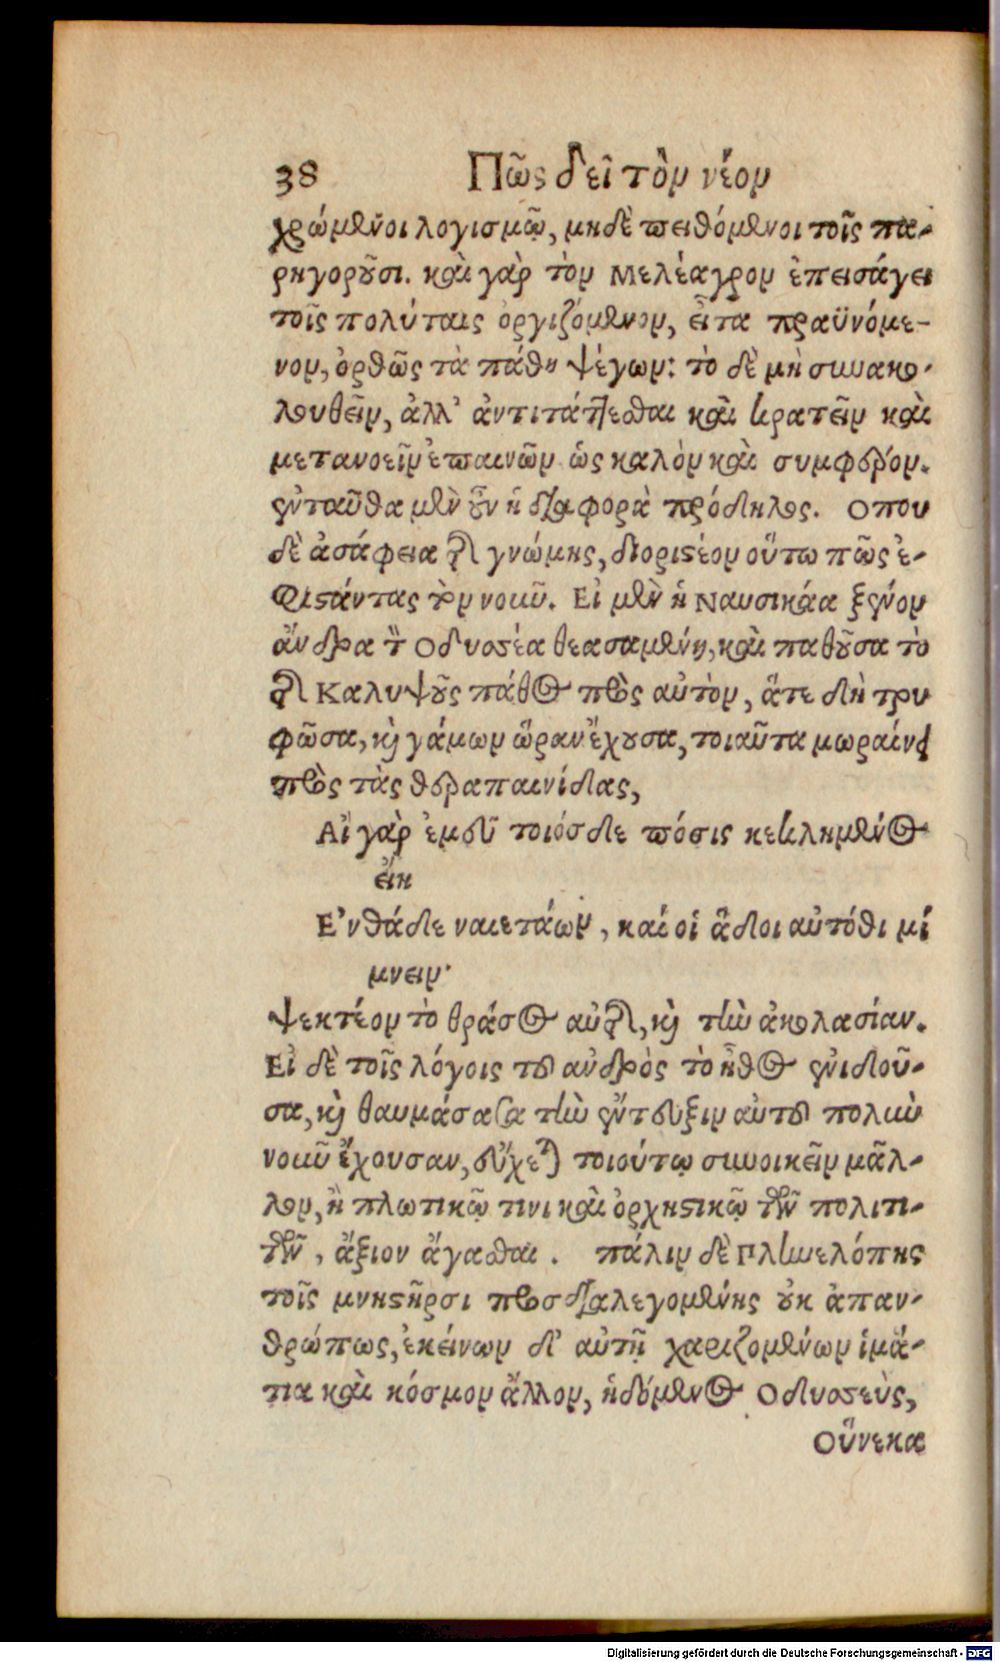 38 Πῶς δεῖ τὸν νέον
χρώμενοι λογισμῷ, μηδὲ πειθόμενοι τοῖς πα-
ρηγοροῦσι. καὶ γὰρ τὸν Μελέαγρον ἐπεισάγει
τοῖς πολίταις ὀργιζόμενον, εἶτα πραϋνόμε-
νον, ὀρθῶς τὰ πάθη ψέγων: τὸ δὲ μὴ συνακο-
λουθεῖν, ἀλλ' ἀντιτάττεσθαι καὶ κρατεῖν καὶ
μετανοεῖν ἐπαινῶν ὡς καλὸν καὶ συμφέρον.
ἐνταῦθα μὲν οὖν ἡ διαφορὰ πρόδηλος. Οπου
δὲ ἀσάφεια τῆς γνώμης, διοριστέον οὕτω πῶς ἐ-
φιστάντας τὸν νοῦν. Εἰ μὲν ἡ Ναυσικάα ξένον
ἄνδρα τὸν Οδυσσέα θεασαμένη, καὶ παθοῦσα τὸ
τῆς Καλυψοῦς πάθος πρὸς αὐτὸν, ἅτε δὴ τρυ
φῶσα, καὶ γάμων ὥραν ἔχουσα, τοιαῦτα μωραίνει
πρὸς τὰς θεραπαινίδας,
Αἲ γὰρ ἐμοὶ τοιόσδε πόσις κεκλημένος
εἴη
Ε'νθάδε ναιετάων, καί οἱ ἅδοι αὐτόθι μί
μνειν·
ψεκτέον τὸ θράσος αὐτῆς, καὶ τὴν ἀκολασίαν.
Εἰ δὲ τοῖς λόγοις τοῦ ἀνδρὸς τὸ ἦθος ἐνιδοῦ-
σα, καὶ θαυμάσασα τὴν ἔντευξιν αὐτοῦ πολὺν
νοῦν ἔχουσαν, εὔχεται τοιούτῳ συνοικεῖν μᾶλ-
λον, ἢ πλωτικῷ τινι καὶ ὀρχηστικῷ τῶν πολιτι-
τῶν, ἄξιον ἄγασθαι. πάλιν δὲ Πηνελόπης
τοῖς μνηστῆρσι προσδιαλεγομένης οὐκ ἀπαν-
θρώπως, ἐκείνων δ' αὐτῇ χαριζομένων ἱμά-
τια καὶ κόσμον ἄλλον, ἡδόμενος Οδυσσεὺς,
Οὕνεκα
Digitalisierung gefördert durch die Deutsche Forschungsgemeinschaft - DFG